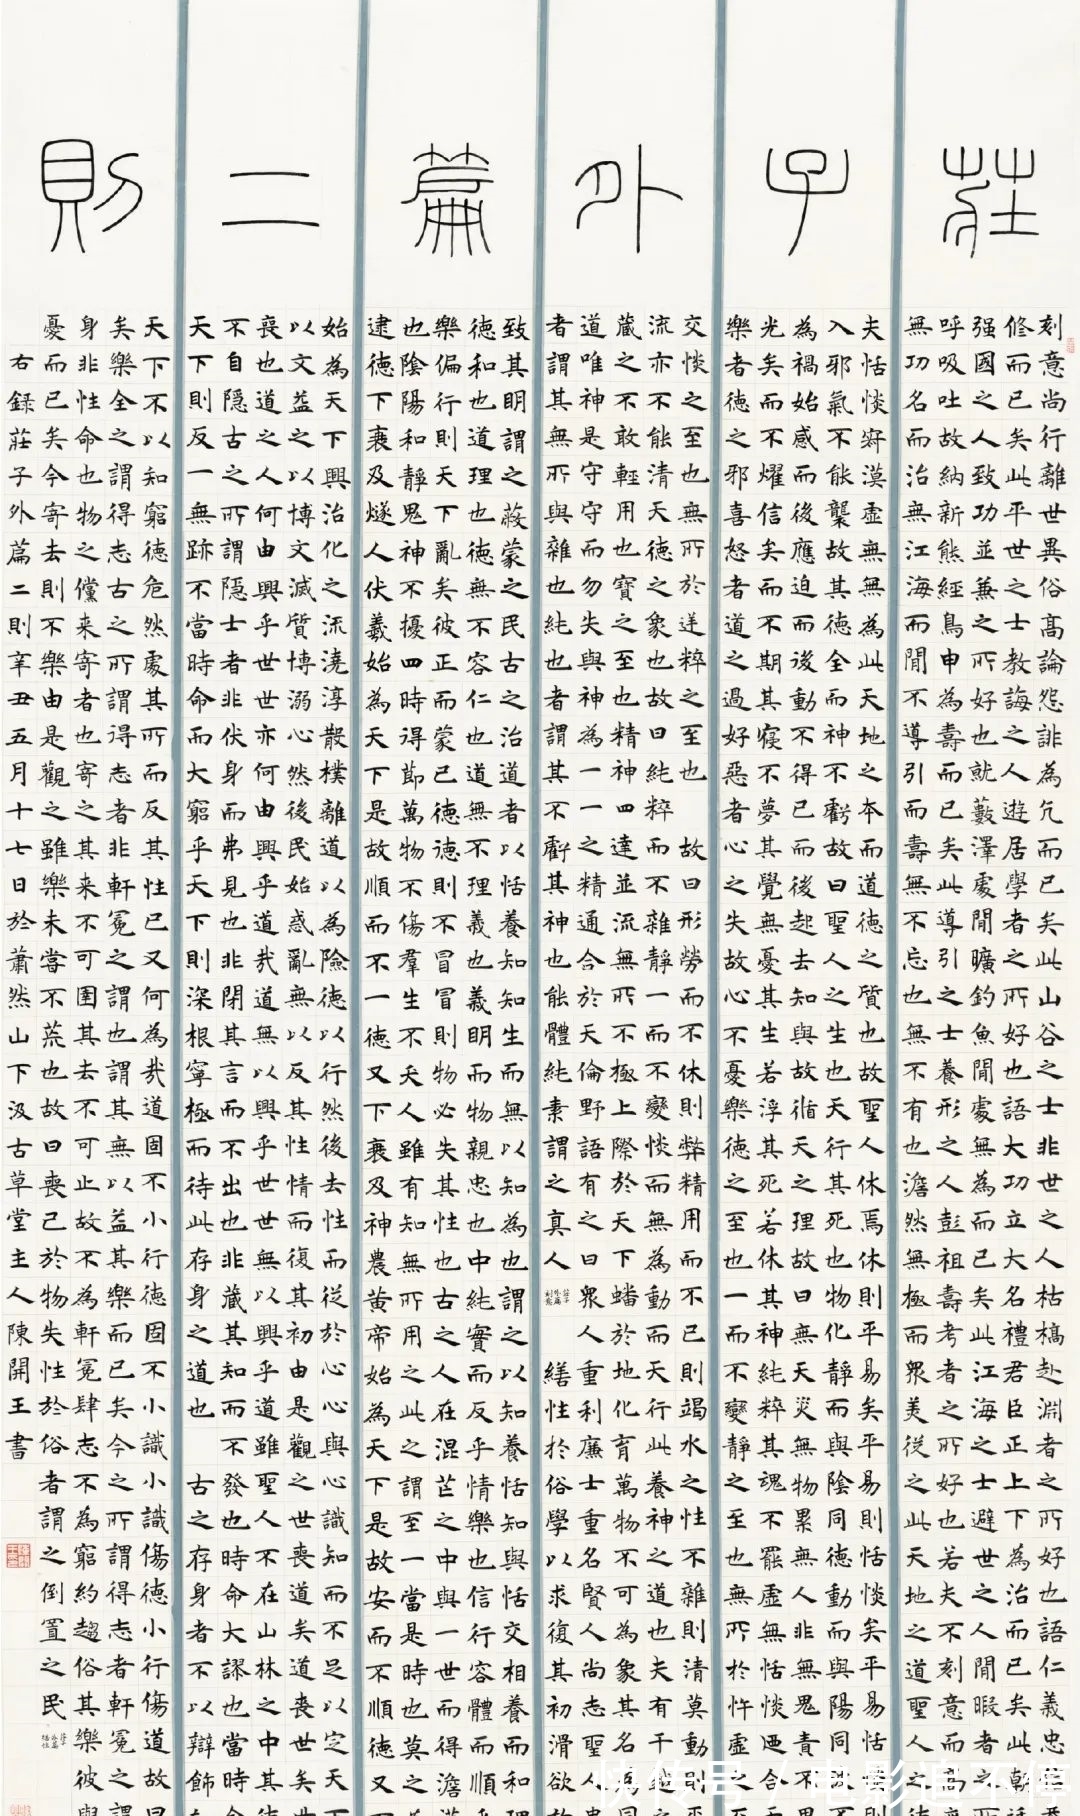 莊子外篇二則
刻意尚行離世異俗高論怨誹為亢而已矣此山谷之士非世之人枯槁赴淵者之所好也語仁義忠
修而已矣此平世之士教誨之人遊居學者之所好也語大功立大名禮君臣正上下為治而已矣此朝
强國之人致功並兼之所好也就藪澤處閒曠釣魚閒處無為而已矣此江海之士避世之人閒暇者之
呼吸吐故納新熊經鳥申為壽而已矣此導引之士養形之人彭祖壽考者之所好也若夫不刻意而高
無功名而治無江海而閒不導引而壽無不忘也無不有也澹然無極而眾美從之此天地之道聖人
夫恬惔寂漠虛無無為此天地之本而道德之質也故聖人休焉休則平易矣平易則恬惔矣平易恬
入邪氣不能襲故其德全而神不虧故曰聖人之生也天行其死也物化靜而與陰同德動而與陽同
為禍始感而後應迫而後動不得已而後起去知與故循天之理故曰無天災無物累無人非無鬼責不
光矣而不燿信矣而不期其寢不夢其覺無憂其生若浮其死若休其神純粹其魂不罷虛無恬惔迺合
樂者德之邪喜怒者道之過好惡者心之失故心不憂樂德之至也一而不變靜之至也無所於忤虛之
交惔之至也無所於逆粹之至也 故曰形勞而不休則弊精用而不已則竭水之性不雜則清莫動則
流亦不能清天德之象也故曰純粹而不雜靜一而不變惔而無為動而天行此養神之道也夫有干
藏之不敢輕用也寶之至也精神四達並流無所不極上際於天下蟠於地化育萬物不可為象其名
道唯神是守守而勿失與神為一一之精通合於天倫野語有之曰眾人重利廉士重名賢人尚志聖
者謂其無所與雜也純也者謂其不虧其神也能體純素謂之真人 繕性於俗學以求復其初滑欲
致其明謂之蔽蒙之民古之治道者以恬養知知生而無以知為也謂之以知養恬知與恬交相養而和
德和也道理也德無不容仁也道無不理義也義明而物親忠也中純實而反乎情樂也信行容體而順
樂偏行則天下亂矣彼正而蒙己德德則不冒冒則物必失其性也古之人在混芒之中與一世而得澹
也陰陽和靜鬼神不擾四時得節萬物不傷羣生不夭人雖有知無所用之此之謂至一當是時也莫之
逮德下衰及燧人伏羲始為天下是故順而不一德又下衰及神農黃帝始為天下是故安而不順德又
始為天下興治化之流澆淳散樸離道以為險德以行然後去性而從於心心與心識知而不足以定天
以文益之以博文滅質博溺心然後民始惑亂無以反其性情而復其初由是觀之世喪道矣道喪世矣
喪也道之人何由興乎世世亦何由興乎道哉道無以興乎世世無以興乎道雖聖人不在山林之中其
不自隱古之所謂隱士者非伏身而弗見也非閉其言而不出也非藏其知而不發也時命大謬也當時
天下則反一無跡不當時命而大窮乎天下則深根寧極而待此存身之道也 古之存身者不以辯飾
天下不以知窮德危然處其所而反其性已又何為哉道固不小行德固不小識小識傷德小行傷道故曰
矣樂全之謂得志古之所謂得志者非軒冕之謂也謂其無以益其樂而已矣今之所謂得志者軒冕之
身非性命也物之儻來寄者也寄之其來不可圉其去不可止故不為軒冕肆志不為窮約趨俗其樂彼
憂而已矣今寄去則不樂由是觀之雖樂未嘗不荒也故曰喪己於物失性於俗者謂之倒置之民
右録莊子外篇二則辛丑五月十七日於蕭然山下汲古草堂主人陳開王書
快传号/电影追不停